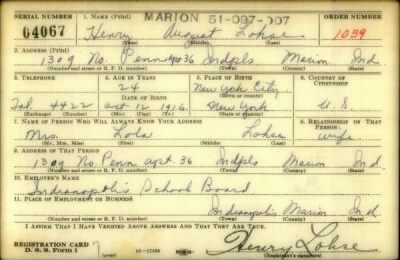 SERIAL NUMBER 1. NAME (Print) MARION 51-007-007 ORDER NUMBER
U4067 Henry August Lohse 1039
(First) (Middle) (Last)
2. ADDRESS (Print)
1309 No. Penn apt 36 Indpls Marion Ind
(Number and street or R. F. D. number) (Town) (County) (State)
3. TELEPHONE 4. AGE IN YEARS 5. PLACE OF BIRTH 6. COUNTRY OF CITIZENSHIP
24 New York City
DATE OF BIRTH (Town or county)
4422 Oct. 12, 1916 New York U. S.
(Exchange) (Number) (Mo.) (Day) (Yr.) (State or country)
7. NAME OF PERSON WHO WILL ALWAYS KNOW YOUR ADDRESS 8. RELATIONSHIP OF THAT PERSON
Mrs. Lola Lohse wife
(Mr., Mrs., Miss) (First) (Middle) (Last)
9. ADDRESS OF THAT PERSON
1309 No Penn apt 36 Indpls Marion Ind.
(Number and street or R. F. D. number) (Town) (County) (State)
10. EMPLOYER'S NAME
Indianapolis School Board
11. PLACE OF EMPLOYMENT OR BUSINESS
Indianapolis Marion Ind
(Number and street or R. F. D. number) (Town) (County) (State)
I AFFIRM THAT I HAVE VERIFIED ABOVE ANSWERS AND THAT THEY ARE TRUE.
REGISTRATION CARD
D. S. S. Form 1 Henry Lohse
(Registrant's signature)